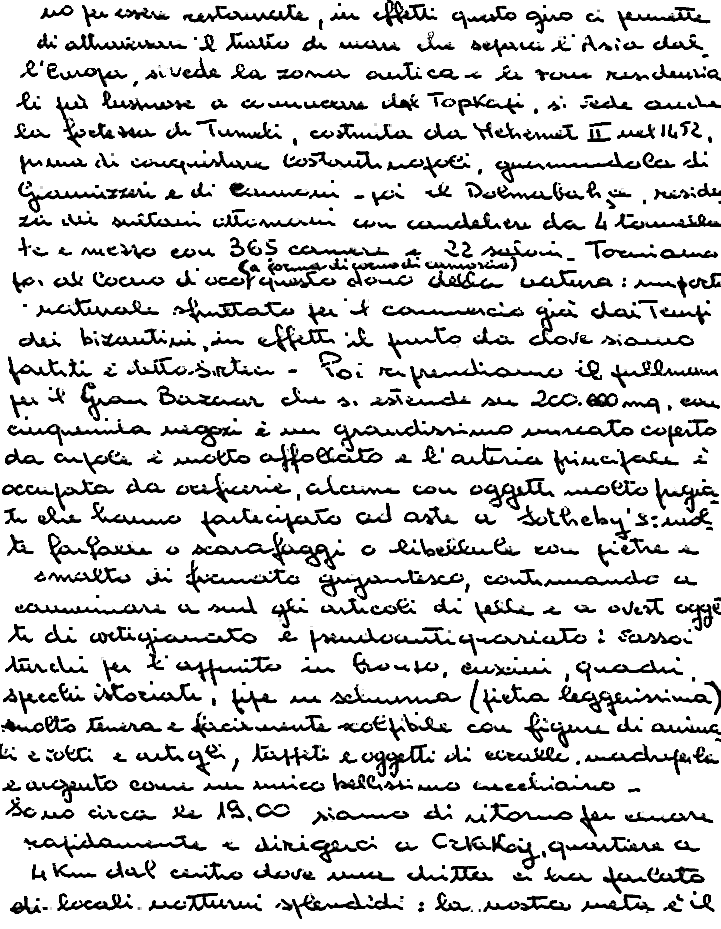 no per essere restaurate, in effetti questo giro ci permette
di attraversare il tratto di mare che separa l'Asia dal-
l'Europa, si vede la zona antica e le zone residenzia
li più lussuose a cominciare dal Topkapi, si vede anche
la fortezza di Rumeli, costruita da Mehemet II nel 1452,
prima di conquistare Costantinopoli, guarnendola di
Giannizzeri e di Cannoni - poi il Dolmabahçe, residen
za dei sultani ottomani con candeliere da 4 tonnella
te e mezzo con 365 camere e 22 saloni - Torniamo
(a forma di corno di camoscio)
poi al Corno d'oro questo dono della natura: un porto
naturale sfruttato per il commercio già dai Tempi
dei bizantini, in effetti il punto da dove siamo
partiti è detto - Poi riprendiamo il pullman
per il Gran Bazaar che si estende su 200.000 mq. con
cinquemila negozi è un grandissimo mercato coperto
da cupole è molto affollato e l'arteria principale è
occupata da oreficerie, alcune con oggetti molto pregia-
ti che hanno partecipato ad aste a Sotheby's: mol-
te farfalle o scarafaggi o libellule con pietre e
smalto di formato gigantesco, continuando a
camminare a sud gli articoli di pelle e a ovest ogget
ti di artigianato e pseudoantiquariato: vassoi
turchi per l'appunto in bronzo, cuscini, quadri,
specchi istoriati, pipe in schiuma (pietra leggerissima)
molto tenera e facilmente scolpibile con figure di anima
li e volti e artigli, tappeti e oggetti di corallo, madreperla
e argento come un unico bellissimo cucchiaino -
Sono circa le 19.00 siamo di ritorno per cenare
rapidamente e dirigerci a quartiere a
4 Km dal centro dove una ditta ci ha parlato
di locali notturni splendidi: la nostra meta è il